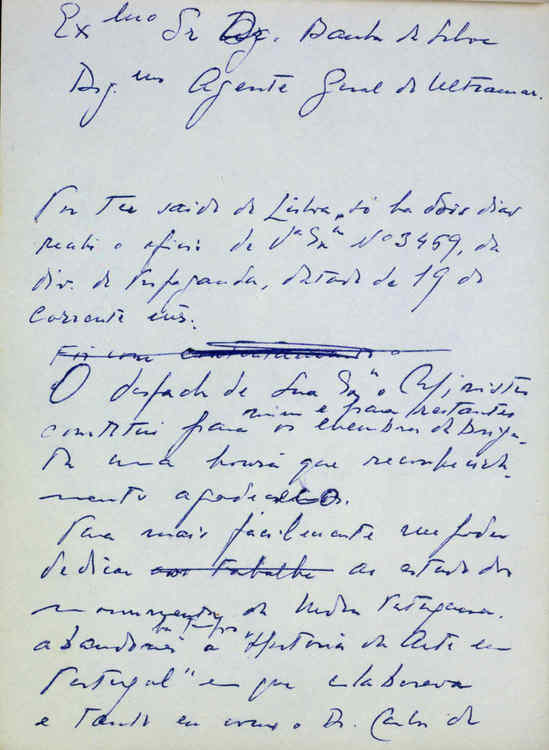 Ex.mo Sr Dr. Banha da Silva
Dig.mo Agente Geral do Ultramar.
Por ter saido de Lisboa, só ha dois dias
recebi o oficio de Vª Exª Nº 3459, da
div. de Propaganda, datado de 19 do
corrente mês.
Foi com
O despacho de Sua Exª o Ministro
mim e para restantes
constitui para os membros da Briga-
da uma honra que reconhecida-
mente agradecemos.
Para mais fácilmente me poder
dedicar aos trabalho ao estudo dos
monumentos da India Portuguesa.
ha tempos
abandonei a "Historia da Arte em
Portugal" em que colaborava
e tendo em o Dr. Carlos de